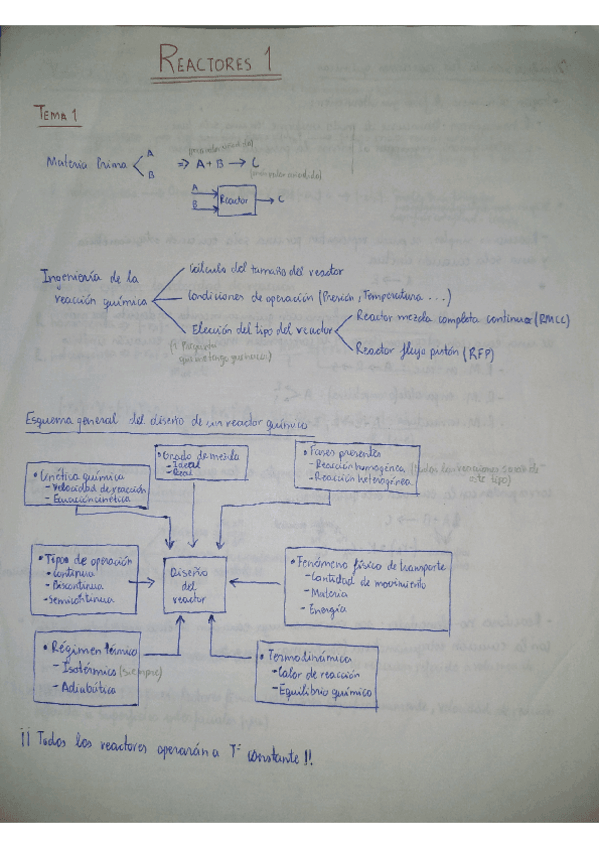 REACTORES 1
TEMA 1
Materia Prima A B => A + B → C
A B Reactor → C
Ingeniería de la reacción química
Cálculo del tamaño del reactor
Condiciones de operación (Presión, Temperatura ...)
Elección del tipo del reactor
Reactor mezcla completa continuo (RMCC)
Reactor flujo pistón (RFP)
Esquema general del diseño de un reactor químico
• Cinética química
- Velocidad de reacción
- Ecuación cinética
• Grado de mezcla
- Ideal
- Real
• Fases presentes
- Reacción homogénea
- Reacción heterogénea
• Tipos de operación
• Continua
- Discontinua
- Semicontinua
Diseño
del
reactor
• Fenómeno físico de transporte
- Cantidad de movimiento
- Materia
- Energía
• Régimen térmico
- Isotérmico (siempre)
- Adiabático
• Termodinámica
- Calor de reacción
- Equilibrio químico
¡¡ Todos los reactores operarán a Tª constante !!